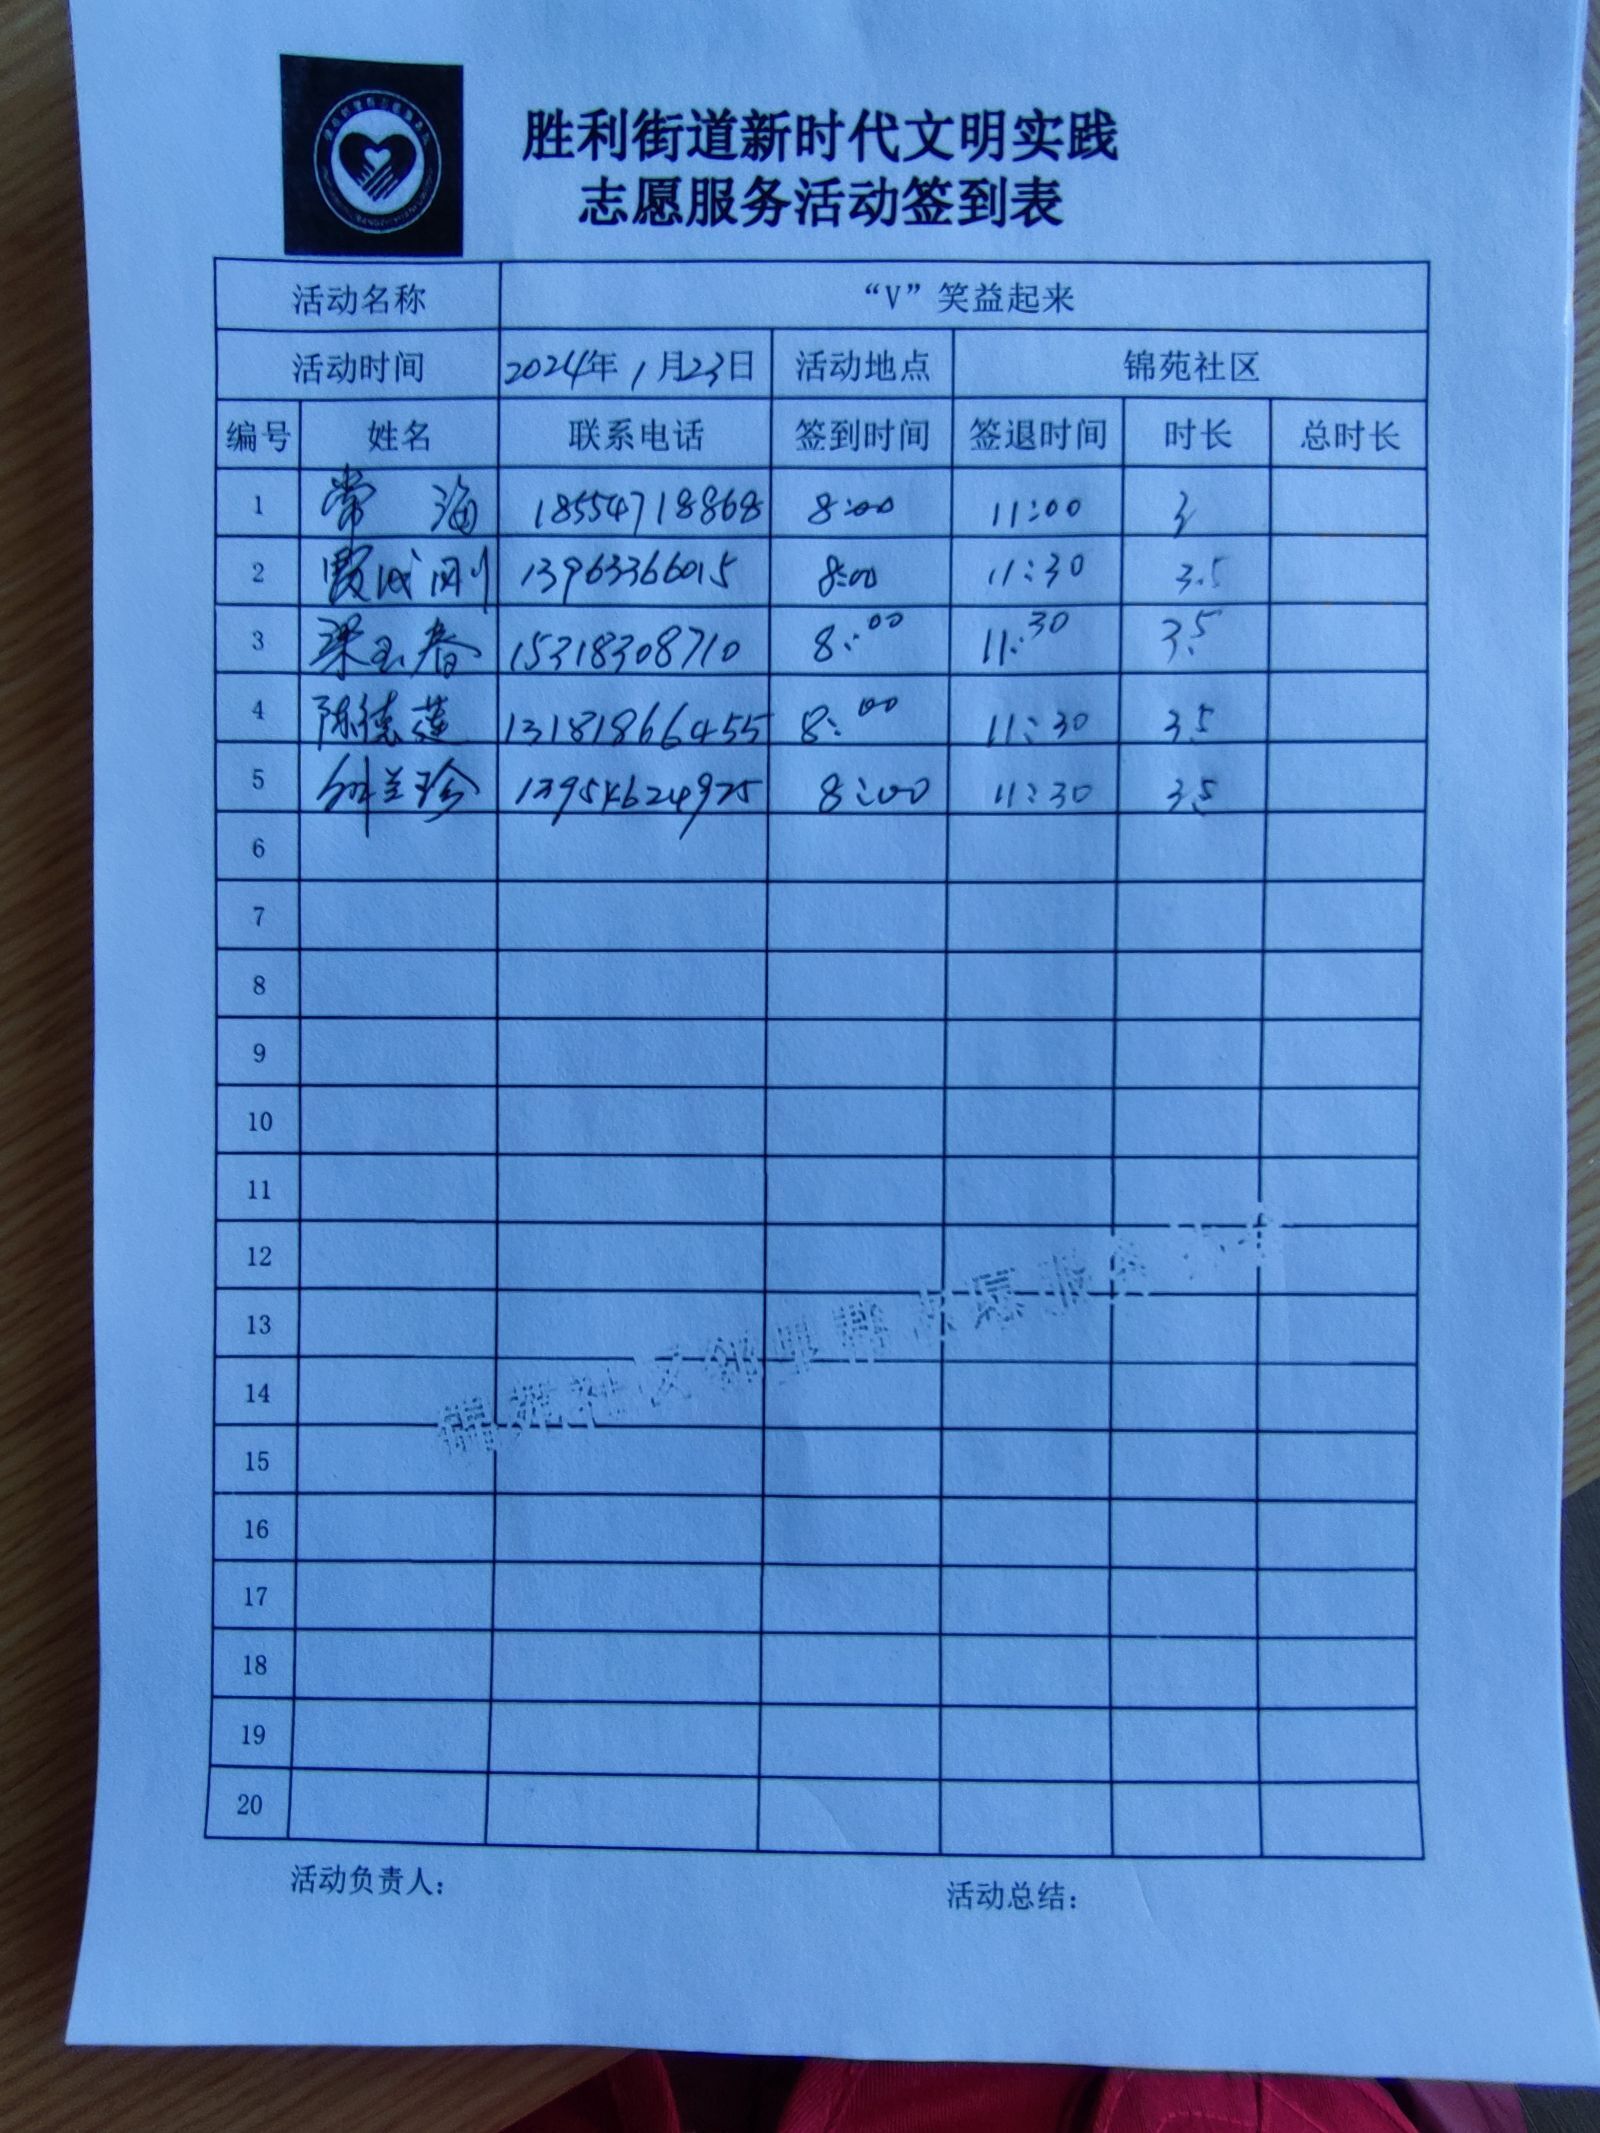 胜利街道新时代文明实践
志愿服务活动签到表
活动名称 “V”笑益起来
活动时间 2024年1月23日 活动地点 锦苑社区
编号 姓名 联系电话 签到时间 签退时间 时长 总时长
1 常海 18554718868 8:00 11:00 3
2 成刚 13963366015 8:00 11:30 3.5
3 梁玉春 15318308710 8:00 11:30 3.5
4 陈德莲 13181866455 8:00 11:30 3.5
5 兰珍 13954624925 8:00 11:30 3.5
6
7
8
9
10
11
12
13
14
15
16
17
18
19
20
锦苑社区邻里帮志愿服务
活动负责人： 活动总结：